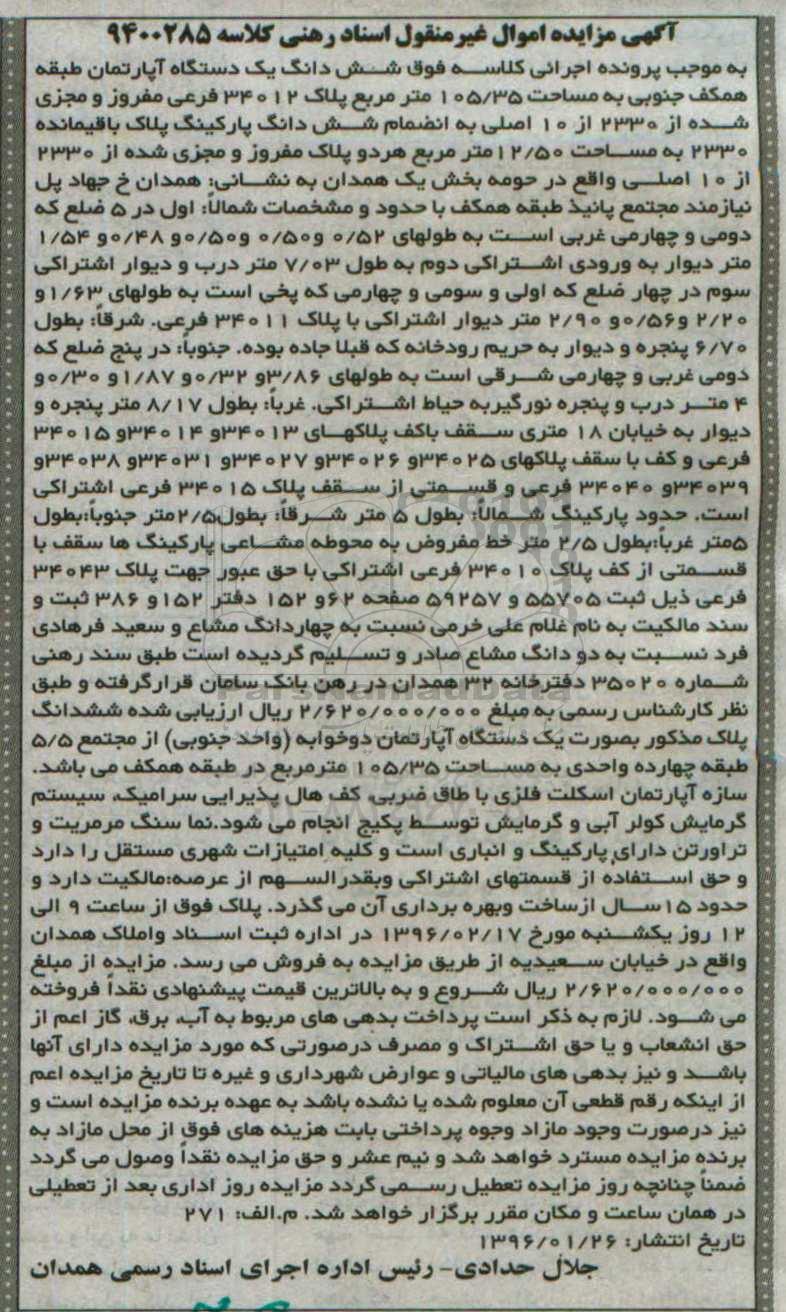 آگهی مزایده اموال غیرمنقول اسناد رهنی کلاسه ۹۴۰۰۲۸۵
به موجب پرونده اجرائی کلاسه فوق شش دانگ یک دستگاه آپارتمان طبقه
همکف جنوبی به مساحت ۱۰۵/۳۵ متر مربع پلاک ۳۴۰۱۲ فرعی مفروز و مجزی
شده از ۲۳۳۰ از ۱۰ اصلی به انضمام شش دانگ پارکینگ پلاک باقیمانده
۲۳۳۰ به مساحت ۱۲/۵۰ متر مربع هردو پلاک مفروز و مجزی شده از ۲۳۳۰
از ۱۰ اصلی واقع در حومه بخش یک همدان به نشانی: همدان خ جهاد پل
نیازمند مجتمع پانیذ طبقه همکف با حدود و مشخصات شمالا: اول در ۵ ضلع که
دومی و چهارمی غربی است به طولهای ۰/۵۲ و ۰/۵۰ و ۰/۵۰ و ۰/۴۸ و ۱/۵۴
متر دیوار به ورودی اشتراکی دوم به طول ۷/۰۳ متر درب و دیوار اشتراکی
سوم در چهار ضلع که اولی و سومی و چهارمی که پخی است به طولهای ۱/۶۳ و
۲/۲۰ و ۰/۵۶ و ۲/۹۰ متر دیوار اشتراکی با پلاک ۳۴۰۱۱ فرعی. شرقاً: بطول
۶/۷۰ پنجره و دیوار به حریم رودخانه که قبلا جاده بوده. جنوباً: در پنج ضلع که
دومی غربی و چهارمی شرقی است به طولهای ۳/۸۶ و ۰/۳۲ و ۱/۸۷ و ۰/۳۰ و
۴ متر درب و پنجره نورگیر به حیاط اشتراکی. غرباً: بطول ۸/۱۷ متر پنجره و
دیوار به خیابان ۱۸ متری سقف باکف پلاکهای ۳۴۰۱۳ و ۳۴۰۱۴ و ۳۴۰۱۵
فرعی و کف با سقف پلاکهای ۳۴۰۲۵ و ۳۴۰۲۶ و ۳۴۰۲۷ و ۳۴۰۳۱ و ۳۴۰۳۸ و
۳۴۰۳۹ و ۳۴۰۴۰ فرعی و قسمتی از سقف پلاک ۳۴۰۱۵ فرعی اشتراکی
است. حدود پارکینگ شمالاً: بطول ۵ متر شرقاً: بطول ۲/۵ متر جنوباً: بطول
۵ متر غرباً: بطول ۲/۵ متر خط مفروض به محوطه مشاعی پارکینگ ها سقف با
قسمتی از کف پلاک ۳۴۰۱۰ فرعی اشتراکی با حق عبور جهت پلاک ۳۴۰۴۳
فرعی ذیل ثبت ۵۵۷۰۵ و ۵۹۲۵۷ صفحه ۶۲ و ۱۵۲ دفتر ۱۵۲ و ۳۸۶ ثبت و
سند مالکیت به نام غلام علی خرمی نسبت به چهاردانگ مشاع و سعید فرهادی
فرد نسبت به دو دانگ مشاع صادر و تسلیم گردیده است طبق سند رهنی
شماره ۳۵۰۲۰ دفترخانه ۳۲ همدان در رهن بانک سامان قرارگرفته و طبق
نظر کارشناس رسمی به مبلغ ۲/۶۲۰/۰۰۰/۰۰۰ ریال ارزیابی شده ششدانگ
پلاک مذکور بصورت یک دستگاه آپارتمان دوخوابه (واحد جنوبی) از مجتمع ۵/۵
طبقه چهارده واحدی به مساحت ۱۰۵/۳۵ مترمربع در طبقه همکف می باشد.
سازه آپارتمان اسکلت فلزی با طاق ضربی. کف هال پذیرایی سرامیک، سیستم
گرمایش کولر آبی و گرمایش توسط پکیج انجام می شود.نما سنگ مرمریت و
تراورتن دارای پارکینگ و انباری است و کلیه امتیازات شهری مستقل را دارد
و حق استفاده از قسمتهای اشتراکی وبقدرالسهم از عرصه:مالکیت دارد و
حدود ۱۵سال ازساخت وبهره برداری آن می گذرد. پلاک فوق از ساعت ۹ الی
۱۲ روز یکشنبه مورخ ۱۳۹۶/۰۲/۱۷ در اداره ثبت اسناد واملاک همدان
واقع در خیابان سعیدیه از طریق مزایده به فروش می رسد. مزایده از مبلغ
۲/۶۲۰/۰۰۰/۰۰۰ ریال شروع و به بالاترین قیمت پیشنهادی نقداً فروخته
می شود. لازم به ذکر است پرداخت بدهی های مربوط به آب، برق، گاز اعم از
حق انشعاب و یا حق اشتراک و مصرف درصورتی که مورد مزایده دارای آنها
باشد و نیز بدهی های مالیاتی و عوارض شهرداری و غیره تا تاریخ مزایده اعم
از اینکه رقم قطعی آن معلوم شده یا نشده باشد به عهده برنده مزایده است و
نیز درصورت وجود مازاد وجوه پرداختی بابت هزینه های فوق از محل مازاد به
برنده مزایده مسترد خواهد شد و نیم عشر و حق مزایده نقداً وصول می گردد
ضمناً چنانچه روز مزایده تعطیل رسمی گردد مزایده روز اداری بعد از تعطیلی
در همان ساعت و مکان مقرر برگزار خواهد شد. م.الف: ۲۷۱
تاریخ انتشار: ۱۳۹۶/۰۱/۲۶
جلال حدادی- رئیس اداره اجرای اسناد رسمی همدان